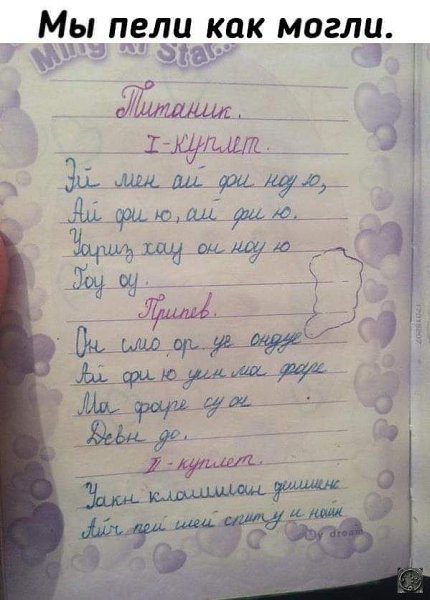 Мы пели как могли.
Титаник.
I-куплет.
Эй мен ай фи ноу ю,
Ай фи ю, ай фи ю.
Уариз хау он ноу ю
Гоу оу.
Припев.
Он смо ор уе ондуе
Ай фи ю уин ма фаре
Ма фаре су он
Девн до.
II-куплет.
Уакн клашишан дишшенс
Айч пей шей спиту и найн
My dream